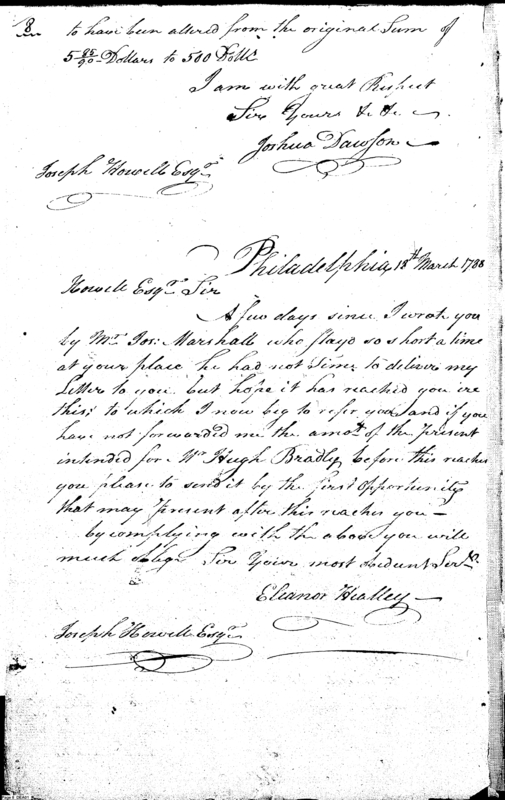 8
to have been altered from the original Sum of
5 25/90 Dollars to 500 Dolls
I am with great Respect
Sir Yours &c &c
Joshua Dawson
Joseph Howell Esqr
Philadelphia, 18th March 1788
Howell Esqr Sir
A few days since I wrote you
by Mr Jos: Marshall who stayd so short a time
at your place he had not time to deliver my
Letter to you but hope it has reached you ere
this; to which I now beg to refer you, and if you
have not forwarded me the amot of the Present
intended for Mr Hugh Bradly, before this reaches
you please to send it by the first Opportunity
that may present after this reaches you—
by complying with the above you will
much oblige Sir Your most obedient Servt
Eleanor Healley
Joseph Howell Esqr